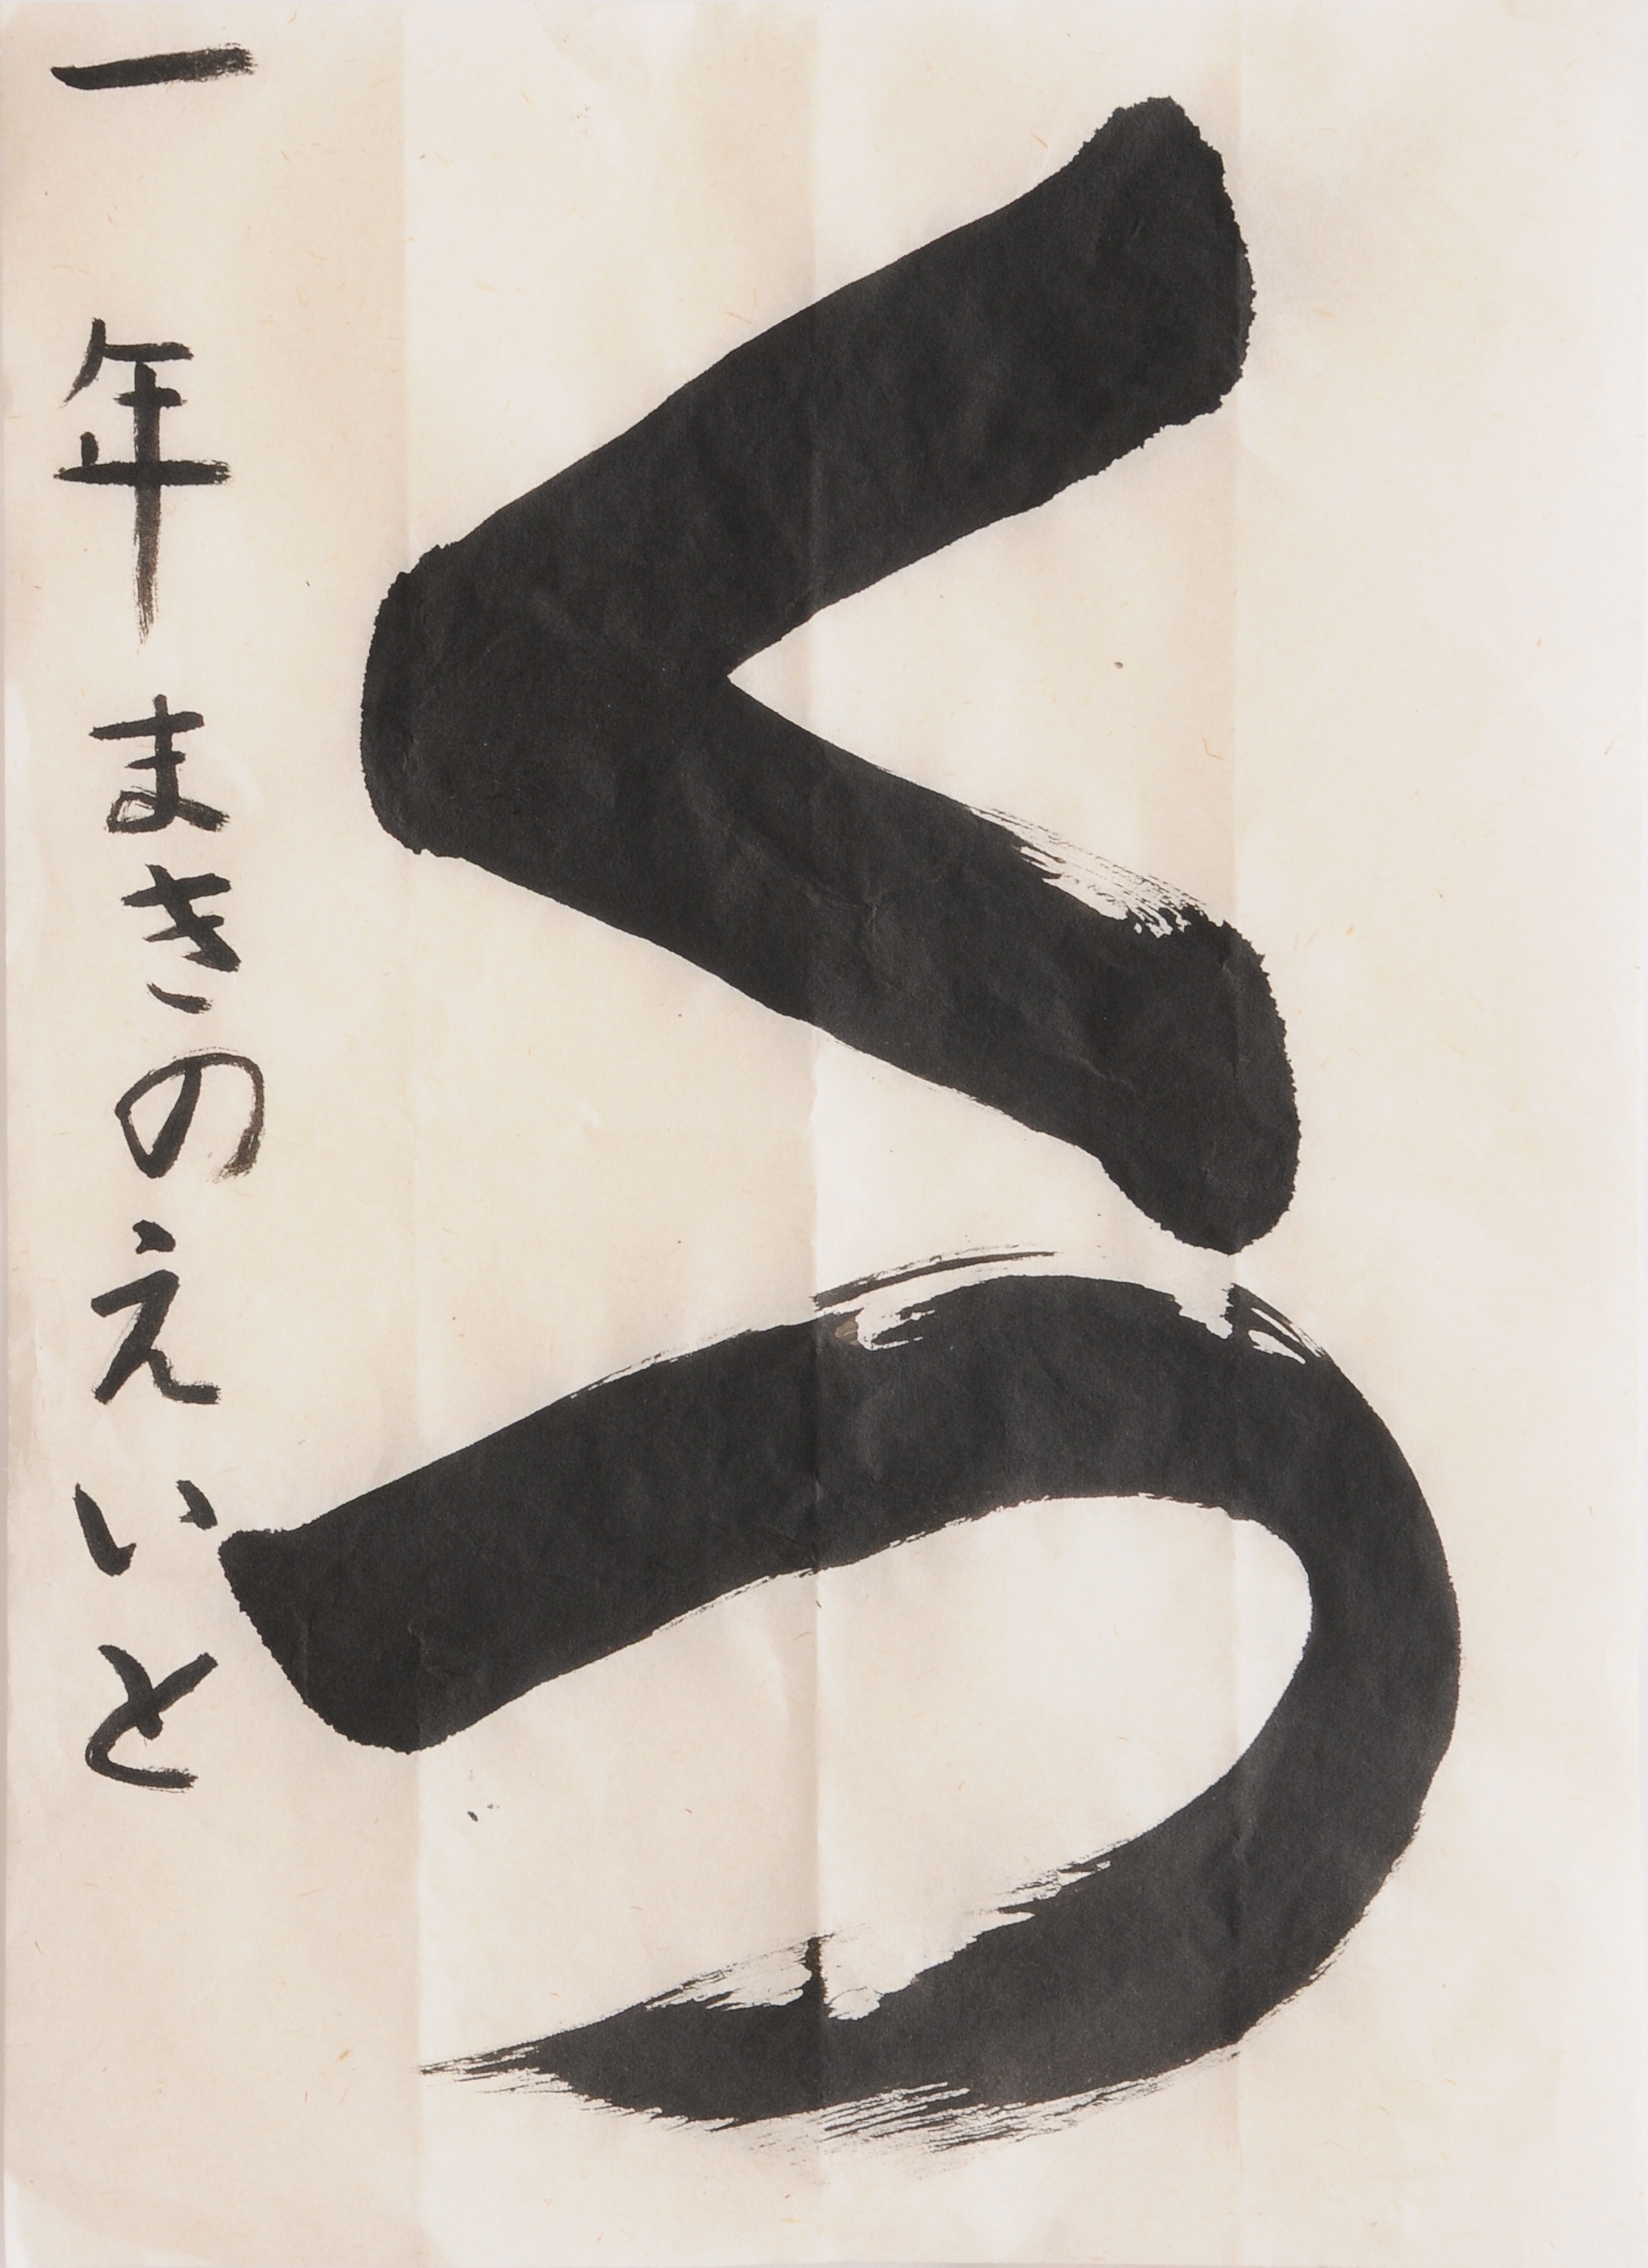 くつ
一年まきのえいと